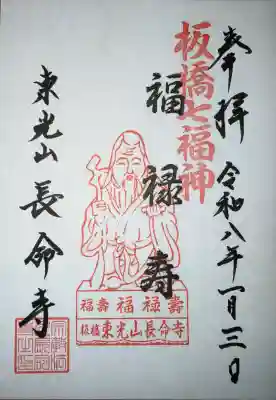 奉拝 令和八年一月三日
板橋七福神
福禄寿
東光山 長命寺
福壽 福禄壽
板橋 東光山長命寺